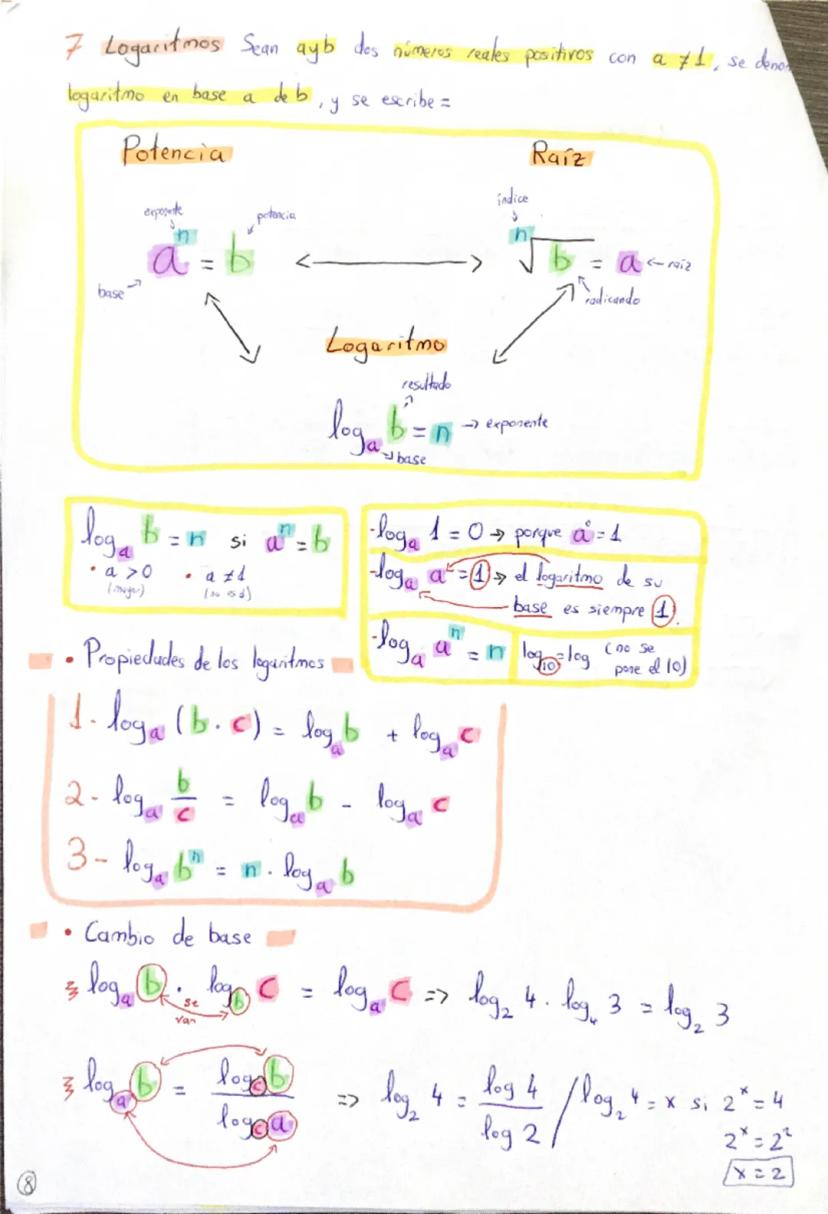 7 Logaritmos Sean a y b dos números reales positivos con a ≠ 1, se deno
logaritmo en base a de b, y se escribe =
Potencia
Raíz
exponente
potencia
aⁿ = b
base
índice
ⁿ√b = a ← raíz
radicando
Logaritmo
resultado
logₐ b = n → exponente
base
logₐ b = n si aⁿ = b
• a > 0 • a ≠ 1
(mayor) (no es 1)
- logₐ 1 = 0 → porque a⁰ = 1
- logₐ a = 1 → el logaritmo de su
base es siempre 1.
- logₐ aⁿ = n
log₁₀ = log (no se
pone el 10)
• Propiedades de los logaritmos
1- logₐ (b · c) = logₐ b + logₐ c
2- logₐ b/c = logₐ b - logₐ c
3- logₐ bⁿ = n · logₐ b
• Cambio de base
logₐ b · log_b c = logₐ c => log₂ 4 · log₄ 3 = log₂ 3
se
van
logₐ b = log_c b / log_c a => log₂ 4 = log 4 / log 2 / log₂ 4 = x si 2ˣ = 4
2ˣ = 2²
x = 2
8